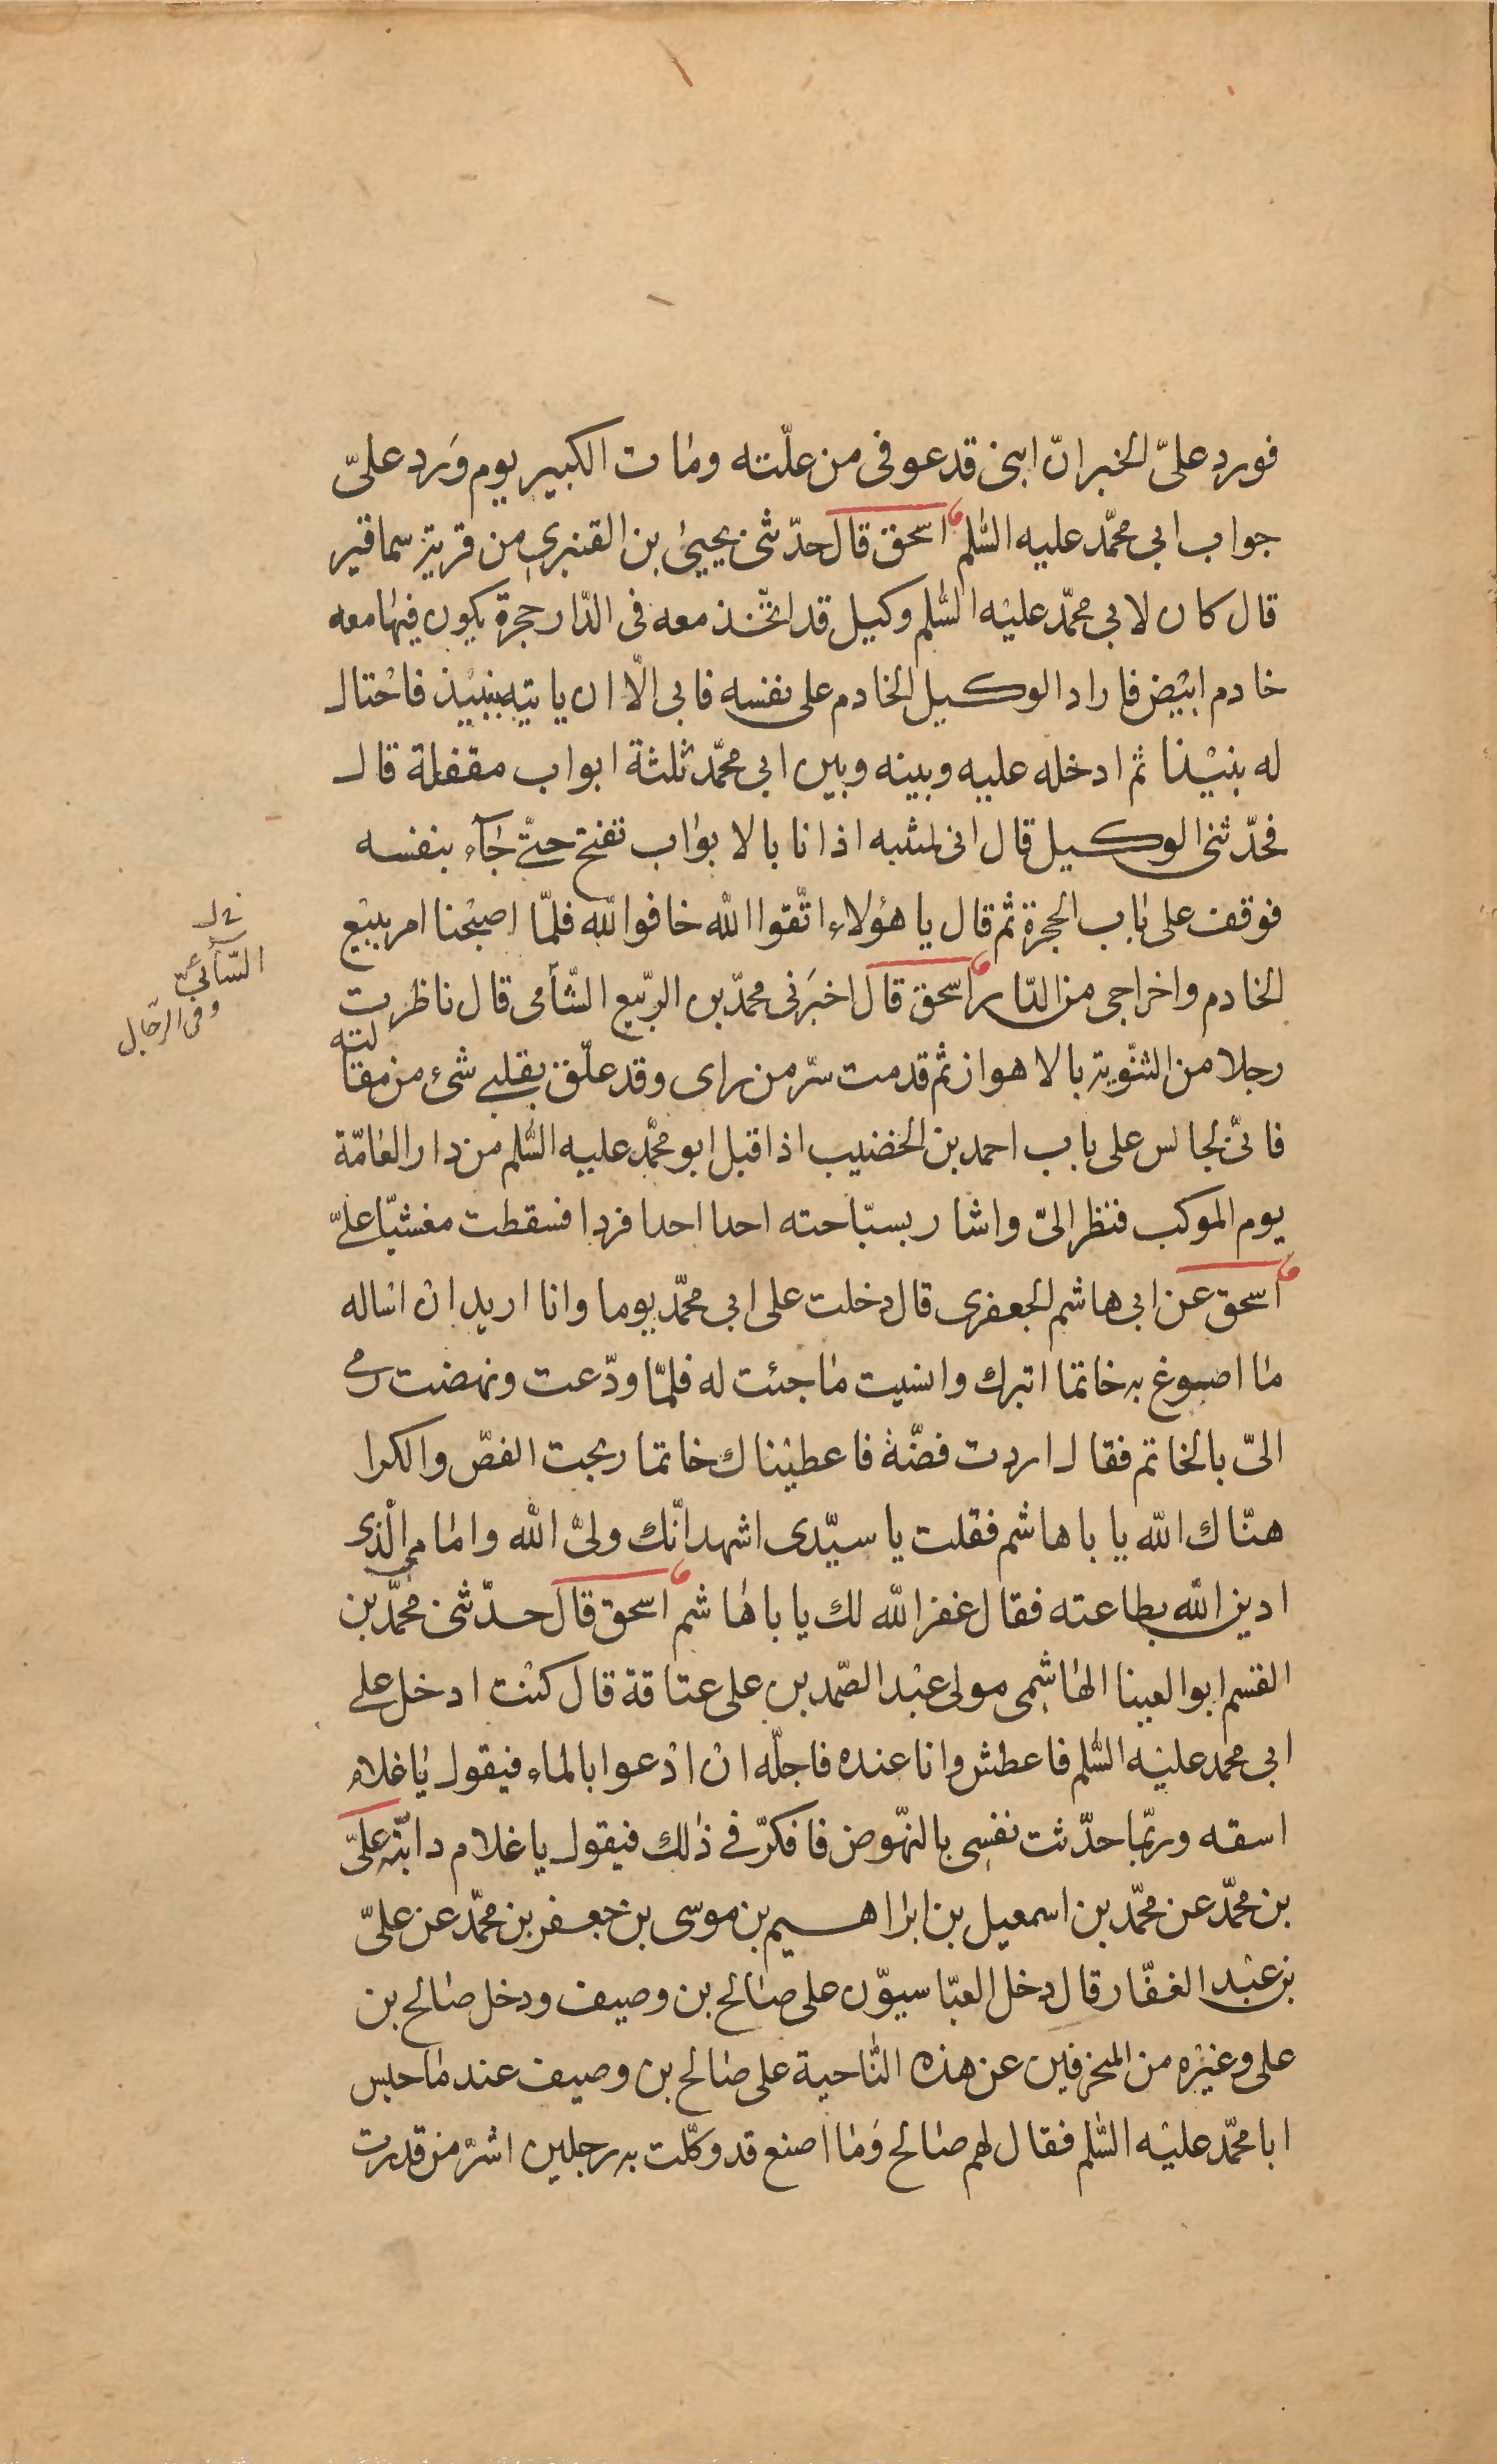 فورد علىّ الخبر انّ ابنى قد عوفى من علّته ومات الكبير يوم وَرد علىّ
جواب ابى محمّد عليه السّلم اسحق قال حدّثنى يحيىٰ بن القنبرى من قرية سماقير
قال كان لابى محمّد عليْه السّلم وكيل قد اتّخذ معه فى الدّار حجرة يكون فيها معه
خادم ابيْض فاراد الوكيل الخادم على نفسه فابى الّا ان ياتيه بنبيْذ فاحْتال
له بنبيْذ ثم ادخله عليه وبينه وبين ابى محمّد ثلثة ابواب مقفلة قال
فحدّثنى الوكيل قال انى لمنتبه اذ انا بالابواب تفتح حتّى جآء بنفسه
فوقف على باب الحجرة ثم قال يا هؤلاء اتّقوا اللّه خافوا اللّه فلمّا اصبْحنا امر ببيْع
الخادم واخراجى من الدّار اسحق قال اخبَرنى محمّد بن الربّيع الشّأمى قال ناظرت
رجلا من الثنّوية بالاهواز ثم قدمت سرّ من راى وقد علّق بقلبى شىء من مقالته
فانىّ لجالس على باب احمد بن الخضيب اذ اقبل ابو محمّد عليه السّلم من دار العامّة
يوم الموكب فنظر الىّ واشار بسبّاحته احدا احدا فردا فسقطت مغشيّا علىّ
اسحق عن ابى هاشم الجعفرى قال دخلت على ابى محمّد يوما وانا اريد ان اساله
ما اصوغ به خاتما اتبرك وانسيت ما جئت له فلمّا ودّعت ونهضت رمى
الىّ بالخاتم فقال اردت فضّة فاعطيْناك خاتما ربحت الفصّ والكرا
هنّاك اللّه يا باهاشم فقلت يا سيّدى اشهد انّك ولىّ اللّه وامامى الّذى
ادين اللّه بطاعته فقال غفر اللّه لك يا باهاشم اسحق قال حدّثنى محمّد بن
القسم ابوالعينا الهاشمى مولى عبْد الصّمد بن على عتاقة قال كنْت ادخل على
ابى محمد عليْه السّلم فاعطش وانا عنده فاجلّه ان ادْعوا بالماء فيقول يا غلام
اسقه وربّما حدّثت نفسى بالنهّوض فافكرّ فى ذلك فيقول يا غلام دابّته علىّ
بن محمّد عن محمّد بن اسمعيل بن ابراهيم بن موسى بن جعفر بن محمّد عن علىّ
بن عبْد الغفّار قال دخل العبّاسيوّن على صالح بن وصيف ودخل صالح بن
على وغيْره من المنحرفين عن هذه النّاحية على صالح بن وصيف عند ما حبس
ابا محمّد عليْه السّلم فقال لهم صالح وَما اصنع قد وكّلت به رجلين اشرّ من قدرت
السّآئىّ
وفى الرجال